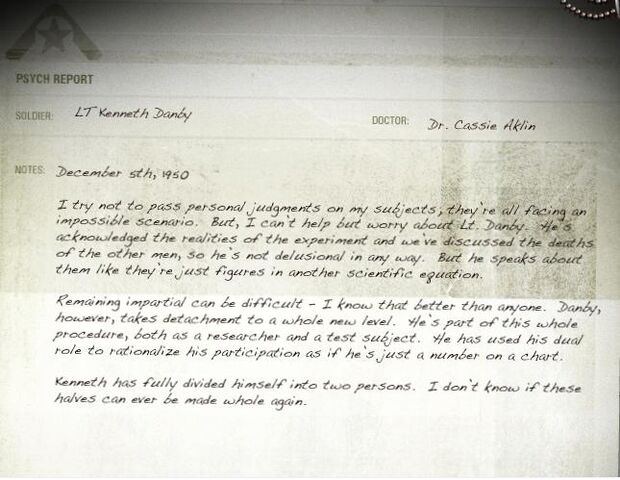 PSYCH REPORT
SOLDIER: LT Kenneth Danby
DOCTOR: Dr. Cassie Aklin
NOTES: December 5th, 1950
I try not to pass personal judgments on my subjects, they're all facing an
impossible scenario. But, I can't help but worry about Lt. Danby. He's
acknowledged the realities of the experiment and we've discussed the deaths
of the other men, so he's not delusional in any way. But he speaks about
them like they're just figures in another scientific equation.
Remaining impartial can be difficult - I know that better than anyone. Danby,
however, takes detachment to a whole new level. He's part of this whole
procedure, both as a researcher and a test subject. He has used his dual
role to rationalize his participation as if he's just a number on a chart.
Kenneth has fully divided himself into two persons. I don't know if these
halves can ever be made whole again.